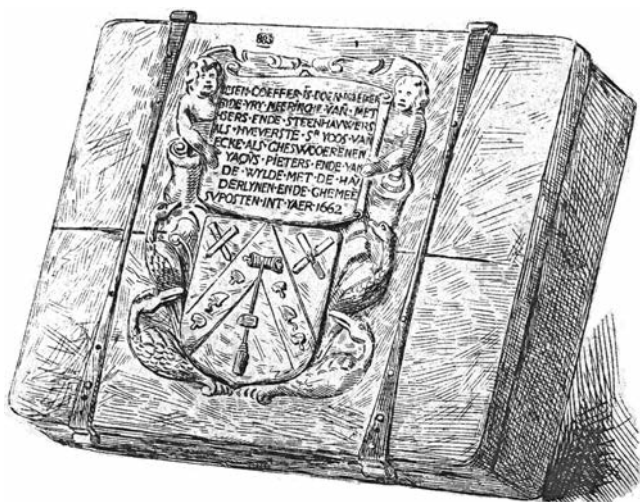 883
DESEN·COEFFER·IS·DOEN·MAEKEN
BIDE·VRY·NEERINCHE·VAN·MET
SERS·ENDE·STEENHAUWERS
ALS·HUEVERSTE·Sʳ·YOOS·VAN
ECKE·ALS·GHESWOOERENEN
YAQUS·PIETERS·ENDE·VAN
DE·WYLDE·MET·DE·HAU
DERLYNEN·ENDE·GHEMEE
SUPOSTEN·INT·YAER·1662